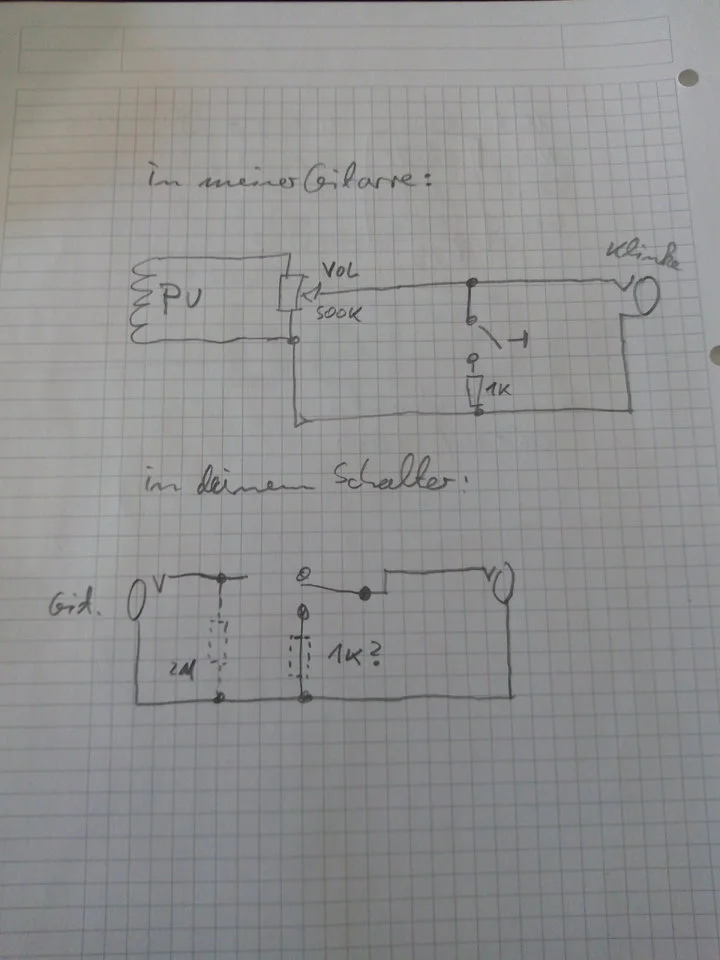 in meiner Gitarre:
Klinke
VOL
PU
500K
1K
in deinem Schalter:
Git.
2M
1K?